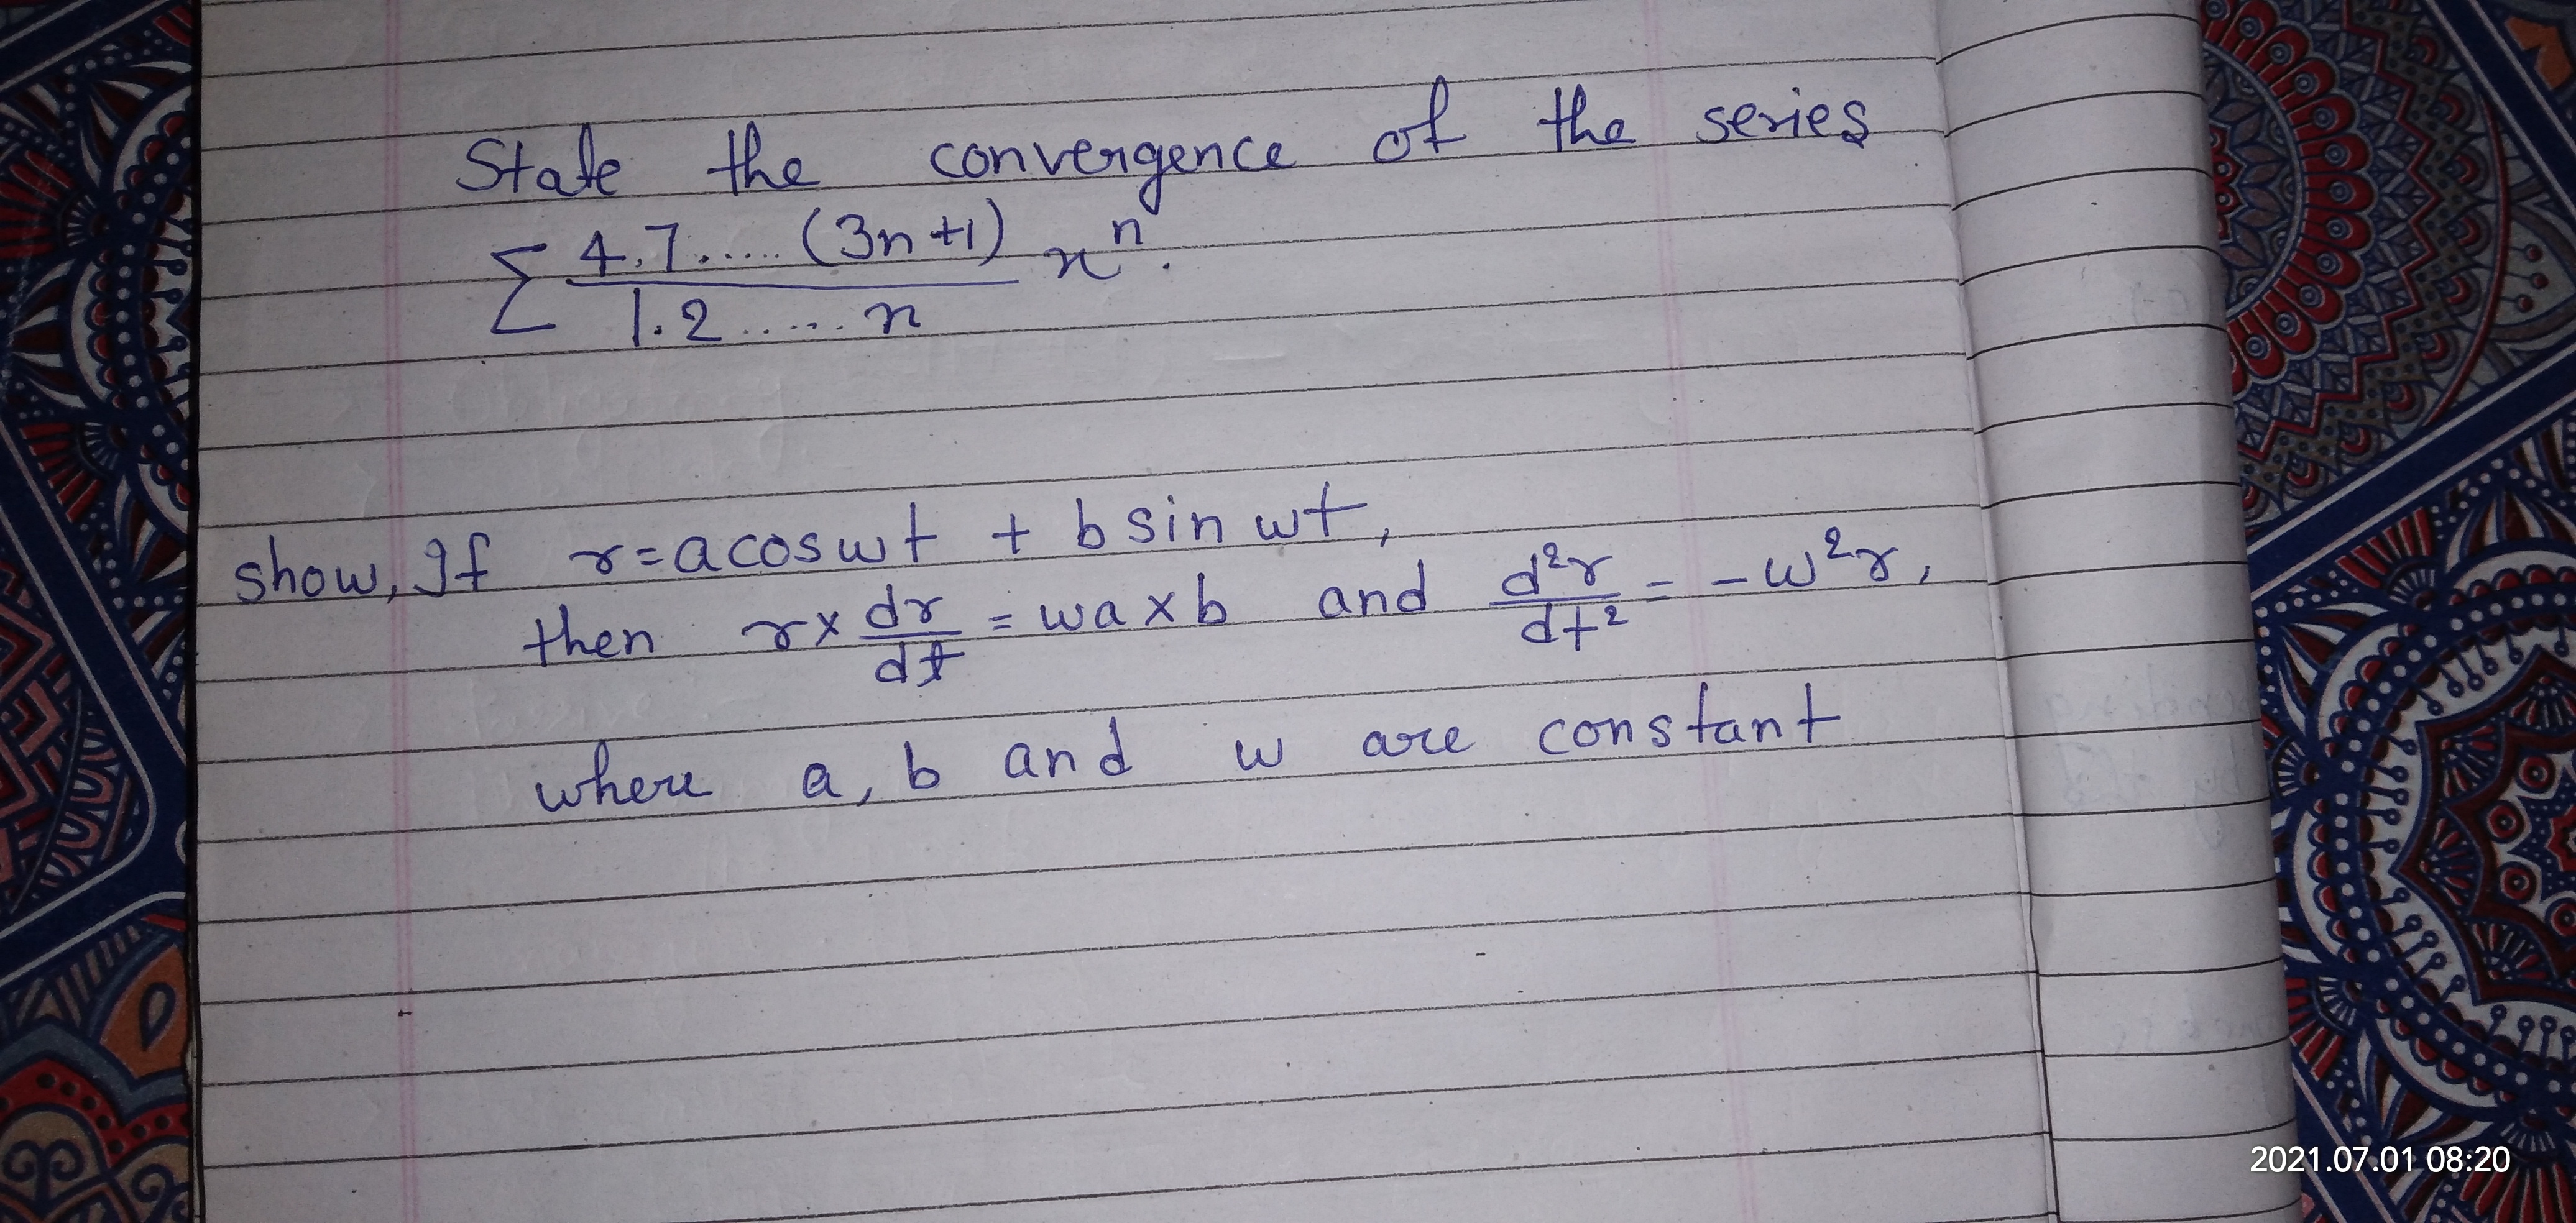 State the convergence of the series
∑ 4.7..... (3n+1) / 1.2 ..... n xⁿ.
show, If r = a cos wt + b sin wt,
then r × dr/dt = wa × b and d²r/dt² = - w²r,
where a, b and w are constant
2021.07.01 08:20